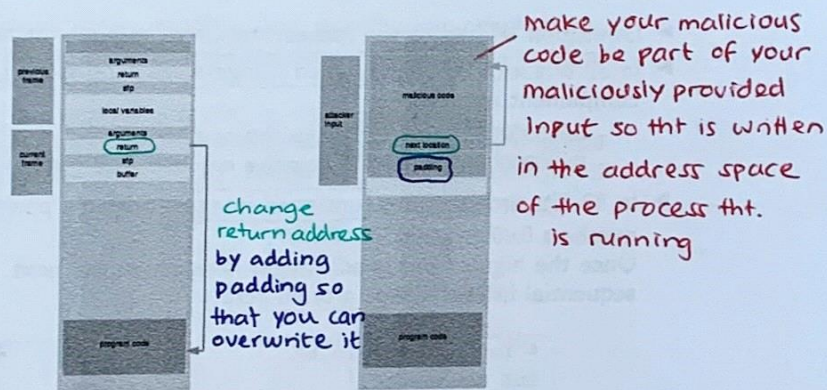 previous
frame
current
frame
arguments
return
sfp
local variables
arguments
return
sfp
buffer
program code
change
return address
by adding
padding so
that you can
overwrite it
attacker
input
malicious code
next location
padding
program code
make your malicious
code be part of your
maliciously provided
input so tht is written
in the address space
of the process tht.
is running